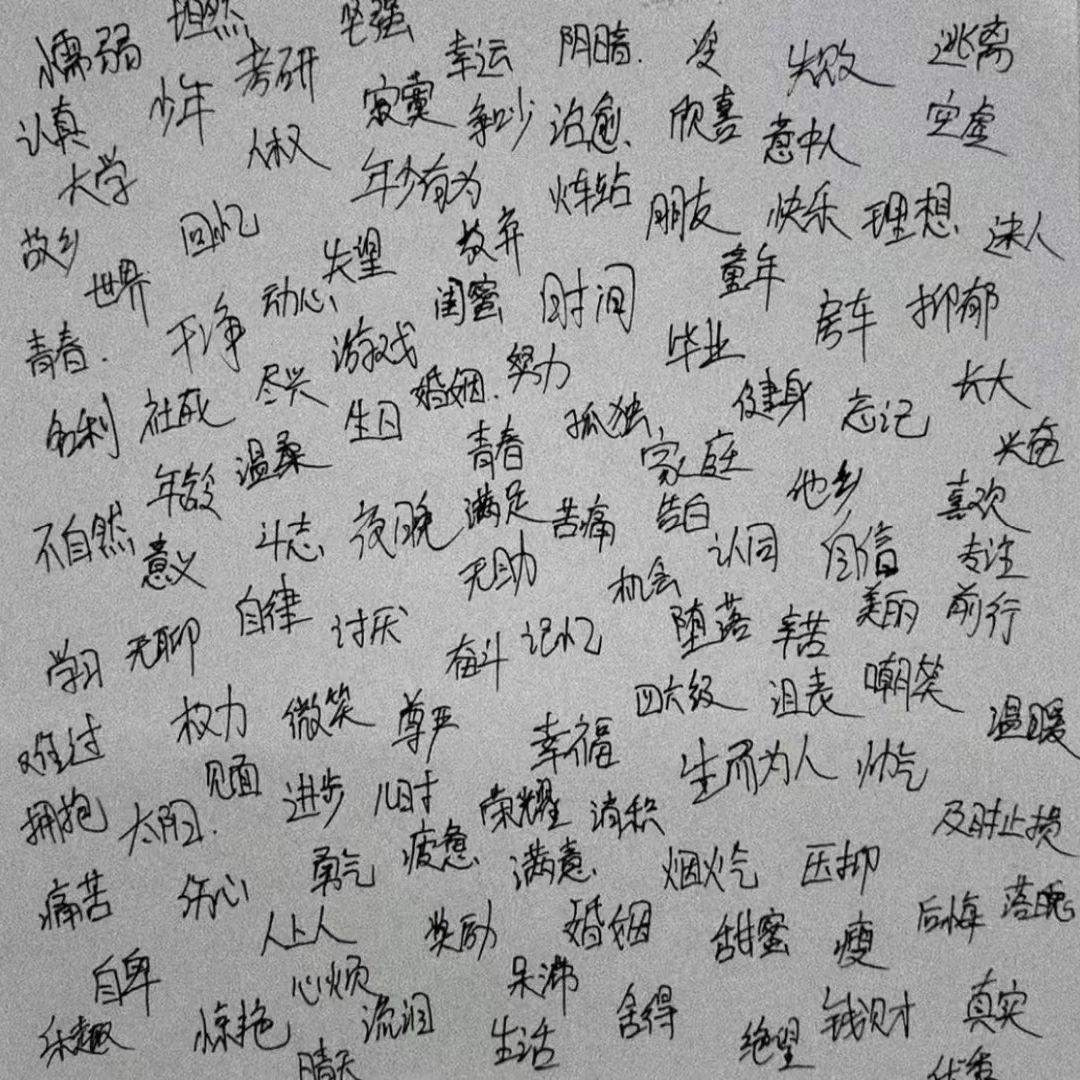 坦然 坚强
懦弱 考研 幸运 阴暗. 失败 逃离
认真 少年 人权 寂寞 治愈. 欣喜 意中人 空虚
大学 年少有为 火车站 朋友 快乐 理想. 迷人
故乡 回忆 失望 放弃 童年
世界 动心. 闺蜜 时间 房车 抑郁
青春. 干净 游戏 毕业
名利 社死 尽兴 生日 婚姻. 努力 孤独. 健身 忘记 长大
年龄 温柔 青春 家庭 他乡 兴奋
不自然 意义 斗志 夜晚 满足 苦痛 告白 认同 自信 喜欢
无助 机会 专注
学习 无聊 自律 讨厌 奋斗 记忆 堕落 辛苦 美丽 前行
难过 权力 微笑 尊严 幸福 四六级 沮丧 嘲笑 温暖
见面 进步 儿时 生而为人 帅气
拥抱 太阳. 荣耀 消积 及时止损
痛苦 伤心 勇气 疲惫 满意. 烟火气 压抑
人上人 奖励 婚姻 甜蜜 瘦 后悔 落魄
自卑 心烦 呆滞
乐趣 惊艳 流泪 生活 舍得 绝望 钱财 真实
晴天 优秀